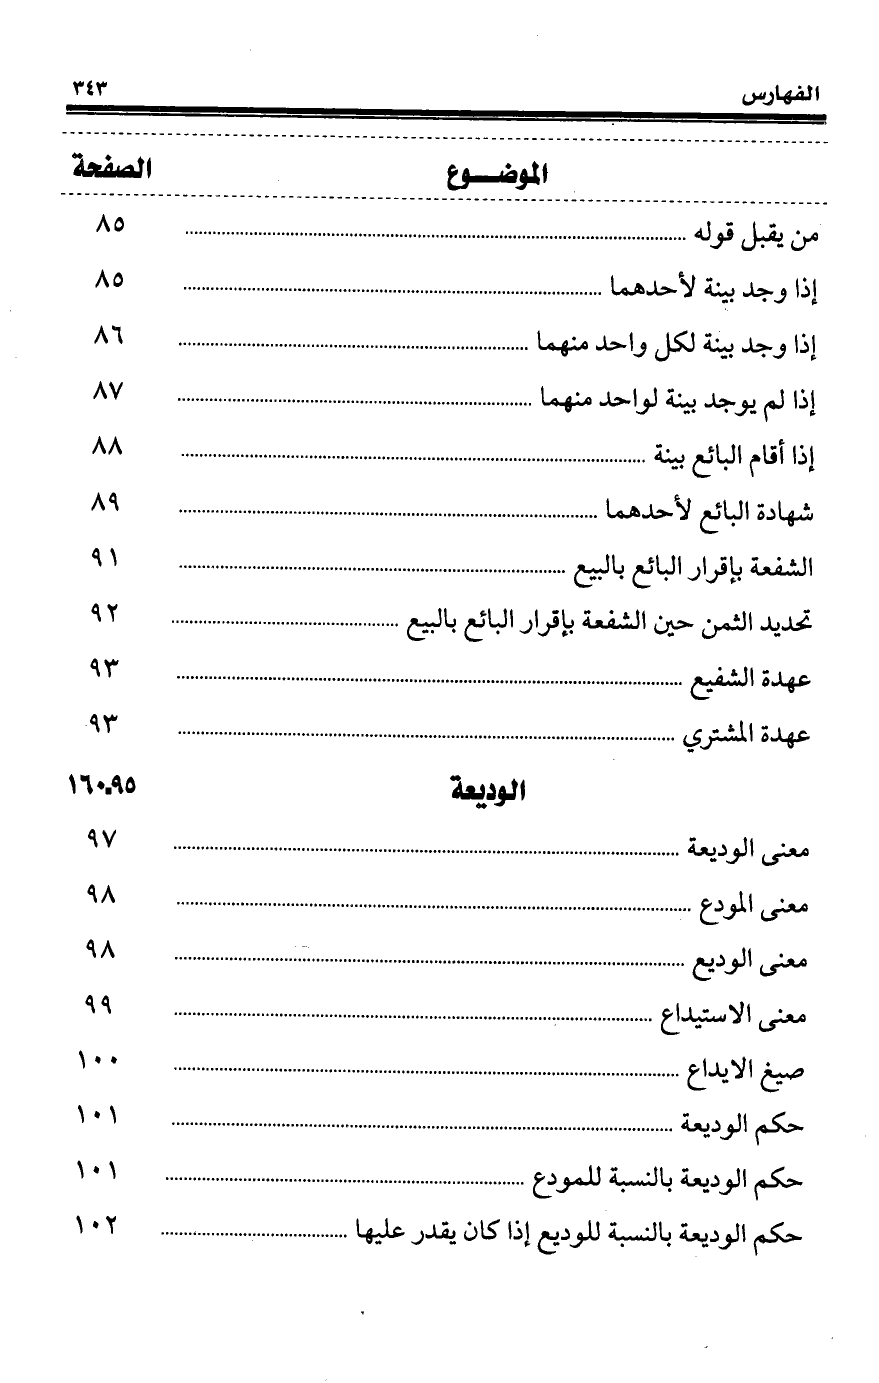 الفهارس ٣٤٣
الموضـــوع الصفحة
من يقبل قوله ٨٥
إذا وجد بينة لأحدهما ٨٥
إذا وجد بينة لكل واحد منهما ٨٦
إذا لم يوجد بينة لواحد منهما ٨٧
إذا أقام البائع بينة ٨٨
شهادة البائع لأحدهما ٨٩
الشفعة بإقرار البائع بالبيع ٩١
تحديد الثمن حين الشفعة بإقرار البائع بالبيع ٩٢
عهدة الشفيع ٩٣
عهدة المشتري ٩٣
الوديعة ٩٥-١٦٠
معنى الوديعة ٩٧
معنى المودع ٩٨
معنى الوديع ٩٨
معنى الاستيداع ٩٩
صيغ الايداع ١٠٠
حكم الوديعة ١٠١
حكم الوديعة بالنسبة للمودع ١٠١
حكم الوديعة بالنسبة للوديع إذا كان يقدر عليها ١٠٢